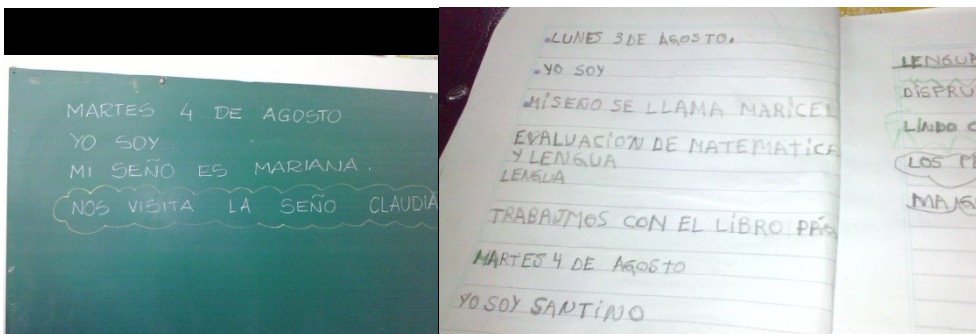 MARTES 4 DE AGOSTO
YO SOY...
MI SEÑO ES MARIANA.
NOS VISITA LA SEÑO CLAUDIA
.LUNES 3 DE AGOSTO.
.YO SOY
.MI SEÑO SE LLAMA MARICEL
EVALUACION DE MATEMATICA
Y LENGUA
LENGUA
TRABAJMOS CON EL LIBRO PÁG
MARTES 4 DE AGOSTO
YO SOY SANTINO
LENGUA
DISFRU
LINDO C
LOS PE